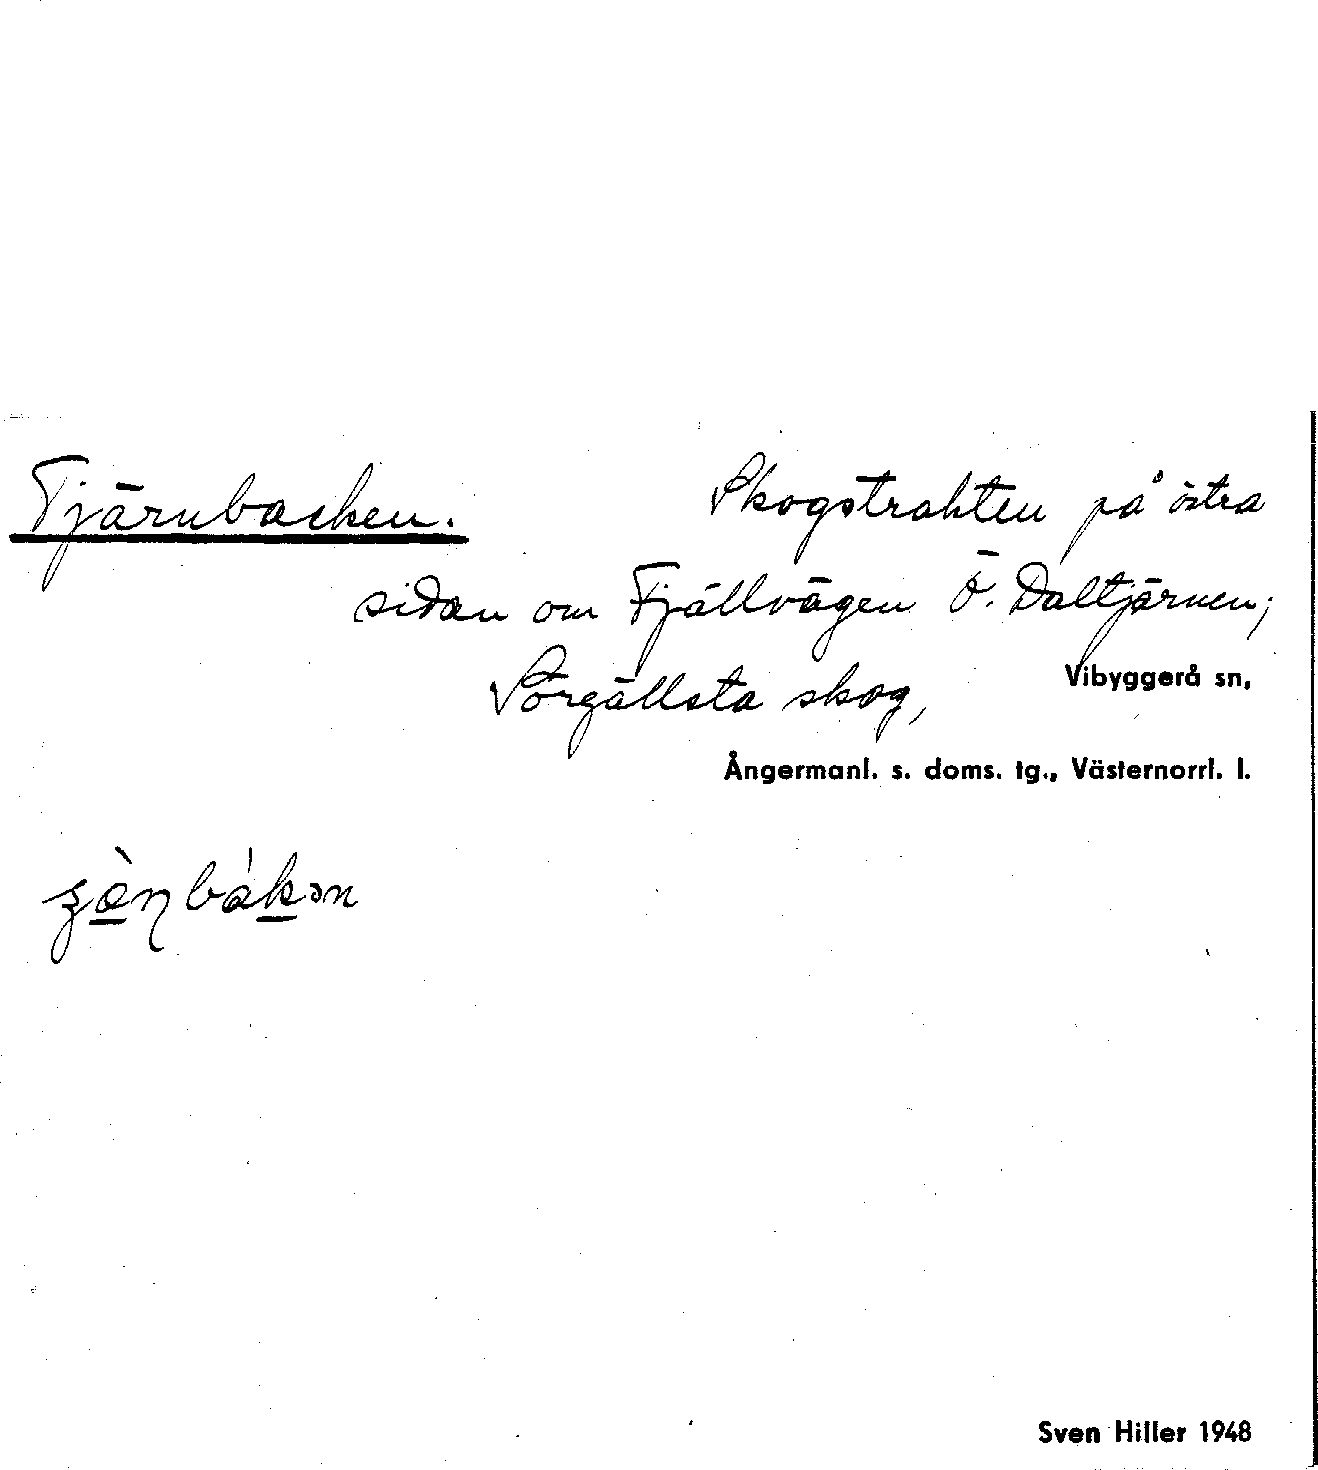 Tjärnbacken. Skogstrakten på östra
sidan om Fjällvägen Ö. Daltjärnen;
Sörgällsta skog, Vibyggerå sn,
Ångermanl. s. doms. tg., Västernorrl. l.
Sven Hiller 1948